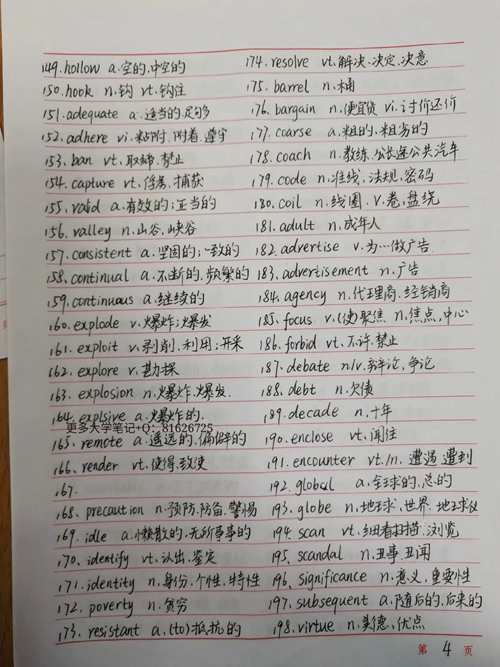 149. hollow a.空的,中空的
150. hook n.钩 vt.钩住
151. adequate a.适当的,足够
152. adhere vi.粘附,附着,遵守
153. ban vt.取缔,禁止
154. capture vt.俘虏,捕获
155. valid a.有效的;正当的
156. valley n.山谷,峡谷
157. consistent a.坚固的;一致的
158. continual a.不断的,频繁的
159. continuous a.继续的
160. explode v.爆炸;爆发
161. exploit v.剥削,利用;开采
162. explore v.勘探
163. explosion n.爆炸,爆发.
164. explsive a.爆炸的.
更多大学笔记+Q：81626725
165. remote a.遥远的,偏僻的
166. render vt.使得,致使
167.
168. precaution n.预防,防备,警惕
169. idle a.懒散的,无所事事的
170. identify vt.认出,鉴定
171. identity n.身份,个性,特性
172. poverty n.贫穷
173. resistant a.(to)抵抗的
174. resolve vt.解决、决定、决意
175. barrel n.桶
176. bargain n.便宜货 vi.讨价还价
177. coarse a.粗的,粗劣的
178. coach n.教练,长途公共汽车
179. code n.准线,法规,密码
180. coil n.线圈 v.卷,盘绕
181. adult n.成年人
182. advertise v.为…做广告
183. advertisement n.广告
184. agency n.代理商,经销商
185. focus v.(使)聚焦 n.焦点,中心
186. forbid vt.不许,禁止
187. debate n/v.辩论,争论
188. debt n.欠债
189. decade n.十年
190. enclose vt.围住
191. encounter vt./n.遭遇 遭到
192. global a.全球的,总的
193. globe n.地球,世界,地球仪
194. scan vt.细看扫描,浏览
195. scandal n.丑事 丑闻
196. significance n.意义,重要性
197. subsequent a.随后的,后来的
198. virtue n.美德,优点
第 4 页